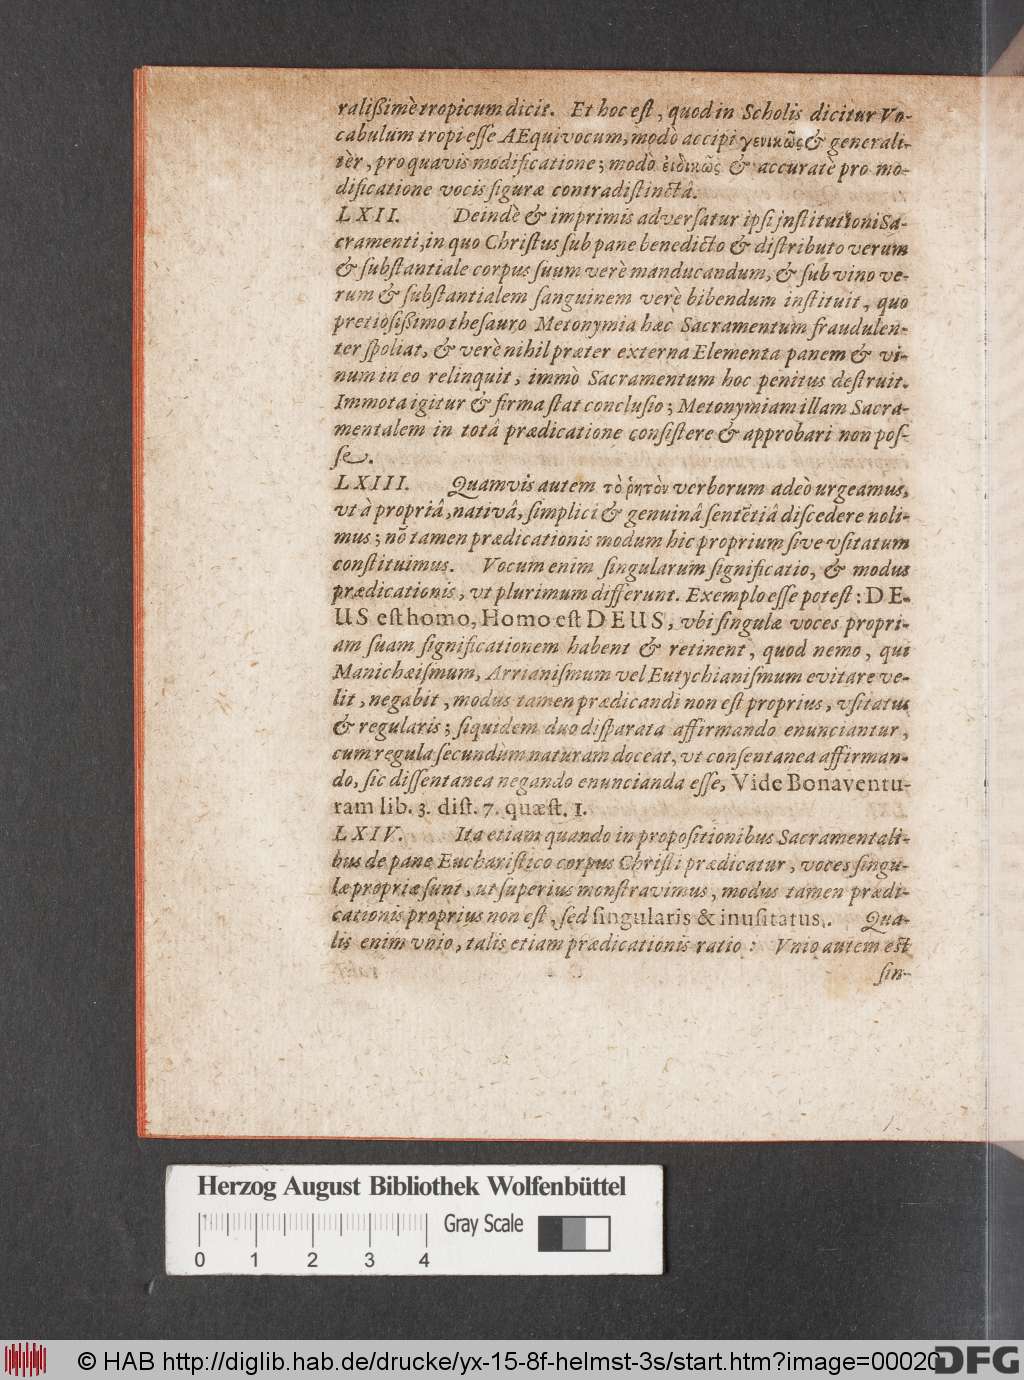 ralißimè tropicum dicit. Et hoc est, quod in Scholis dicitur Vo-
cabulum tropi esse AEquivocum, modò accipi γενικῶς & generali-
tèr, pro quavis modificatione; modò ἐιδικῶς & accuratè pro mo-
dificatione vocis figuræ contradistinctâ.
LXII. Deindè & imprimis adversatur ipsi institutioni Sa-
cramenti, in quo Christus sub pane benedicto & distributo verum
& substantiale corpus suum verè manducandum, & sub vino ve-
rum & substantialem sanguinem verè bibendum instituit, quo
pretiosißimo thesauro Metonymia hæc Sacramentum fraudulen-
ter spoliat, & verè nihil præter externa Elementa panem & vi-
num in eo relinquit, immò Sacramentum hoc penitus destruit.
Immota igitur & firma stat conclusio; Metonymiam illam Sacra-
mentalem in totâ prædicatione consistere & approbari non pos-
se.
LXIII. Quamvis autem τὸ ῥητὸν verborum adeò urgeamus,
vt à propriâ, nativâ, simplici & genuinâ sentētiâ discedere noli-
mus; nō tamen prædicationis modum hic proprium sive vsitatum
constituimus. Vocum enim singularum significatio, & modus
prædicationis, vt plurimum differunt. Exemplo esse potest: DE-
US est homo, Homo est DEUS, vbi singulæ voces propri-
am suam significationem habent & retinent, quod nemo, qui
Manichæismum, Arrianismum vel Eutychianismum evitare ve-
lit, negabit, modus tamen prædicandi non est proprius, vsitatus
& regularis; siquidem duo disparata affirmando enunciantur,
cum regula secundùm naturam doceat, vt consentanea affirman-
do, sic dissentanea negando enuncianda esse, Vide Bonaventu-
ram lib. 3. dist. 7. quæst. 1.
LXIV. Ita etiam quando in propositionibus Sacramentali-
bus de pane Eucharistico corpus Christi prædicatur, voces singu-
læ propriæ sunt, ut superius monstravimus, modus tamen prædi-
cationis proprius non est, sed singularis & inusitatus. Qua-
lis enim vnio, talis etiam prædicationis ratio: Vnio autem est
sin-
Herzog August Bibliothek Wolfenbüttel
Gray Scale
0 1 2 3 4
© HAB http://diglib.hab.de/drucke/yx-15-8f-helmst-3s/start.htm?image=00020
DFG